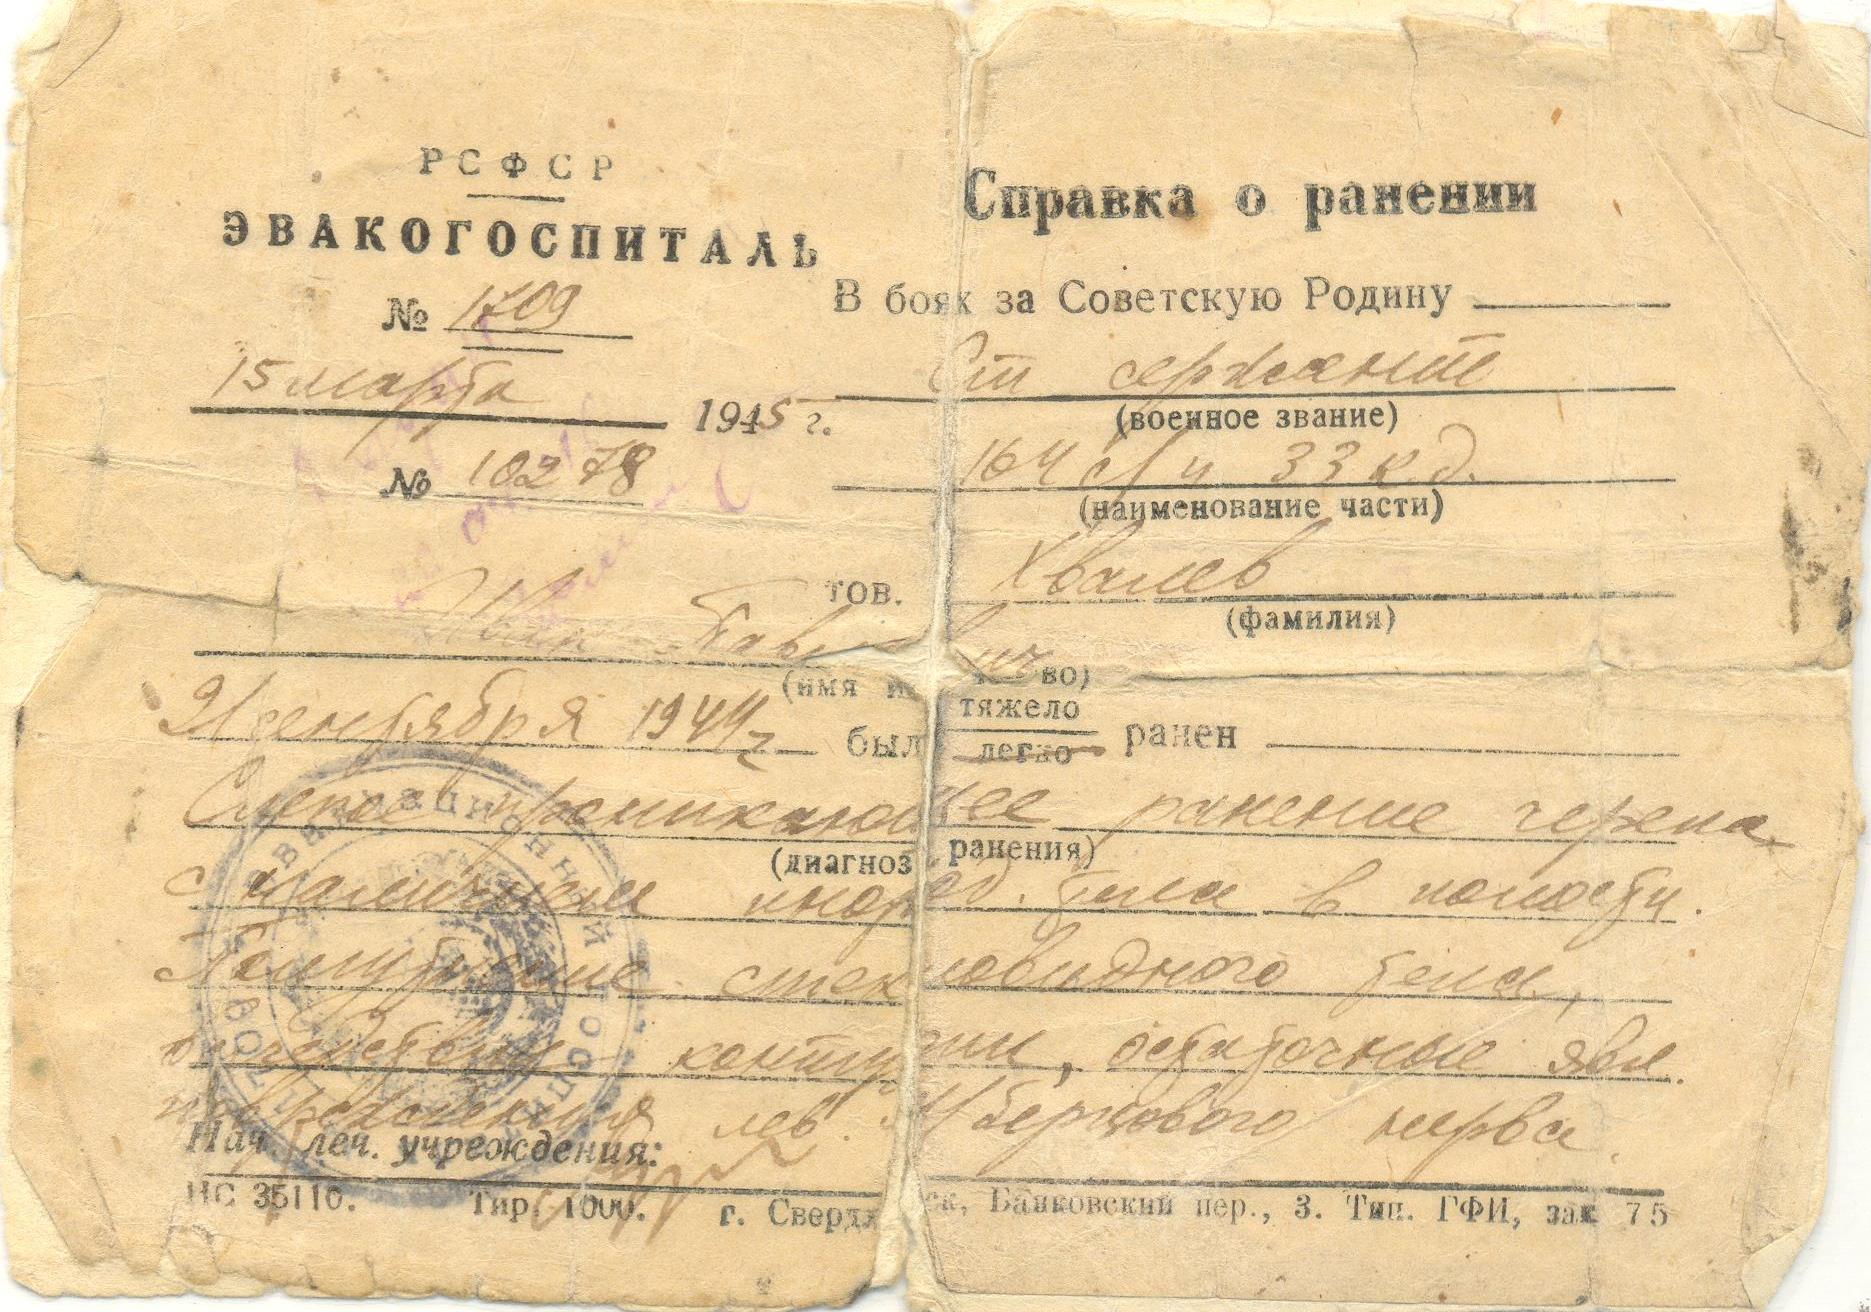 РСФСР
ЭВАКОГОСПИТАЛЬ
№ 1709
15 марта 1945 г.
№ 10278
Справка о ранении
В боях за Советскую Родину
Ст сержант
(военное звание)
164 с/п 33 к.д.
(наименование части)
тов. Хвалев
(фамилия)
Иван Павлович
(имя и во)
21 сентября 1944 г был тяжело легко ранен
Слепое проникающее ранение черепа
(диагноз ранения)
с наличием инород. тела в полости.
Помутнение стекловидного тела,
последствия контузии, остаточные явл.
повреждения лев. М/берцового нерва.
Нач. леч. учреждения:
НС 35110. Тир. 1000. г. Свердл ск, Банковский пер., 3. Тип. ГФИ, зак 75
ЭВАКУАЦИОННЫЙ ГОСПИТАЛЬ